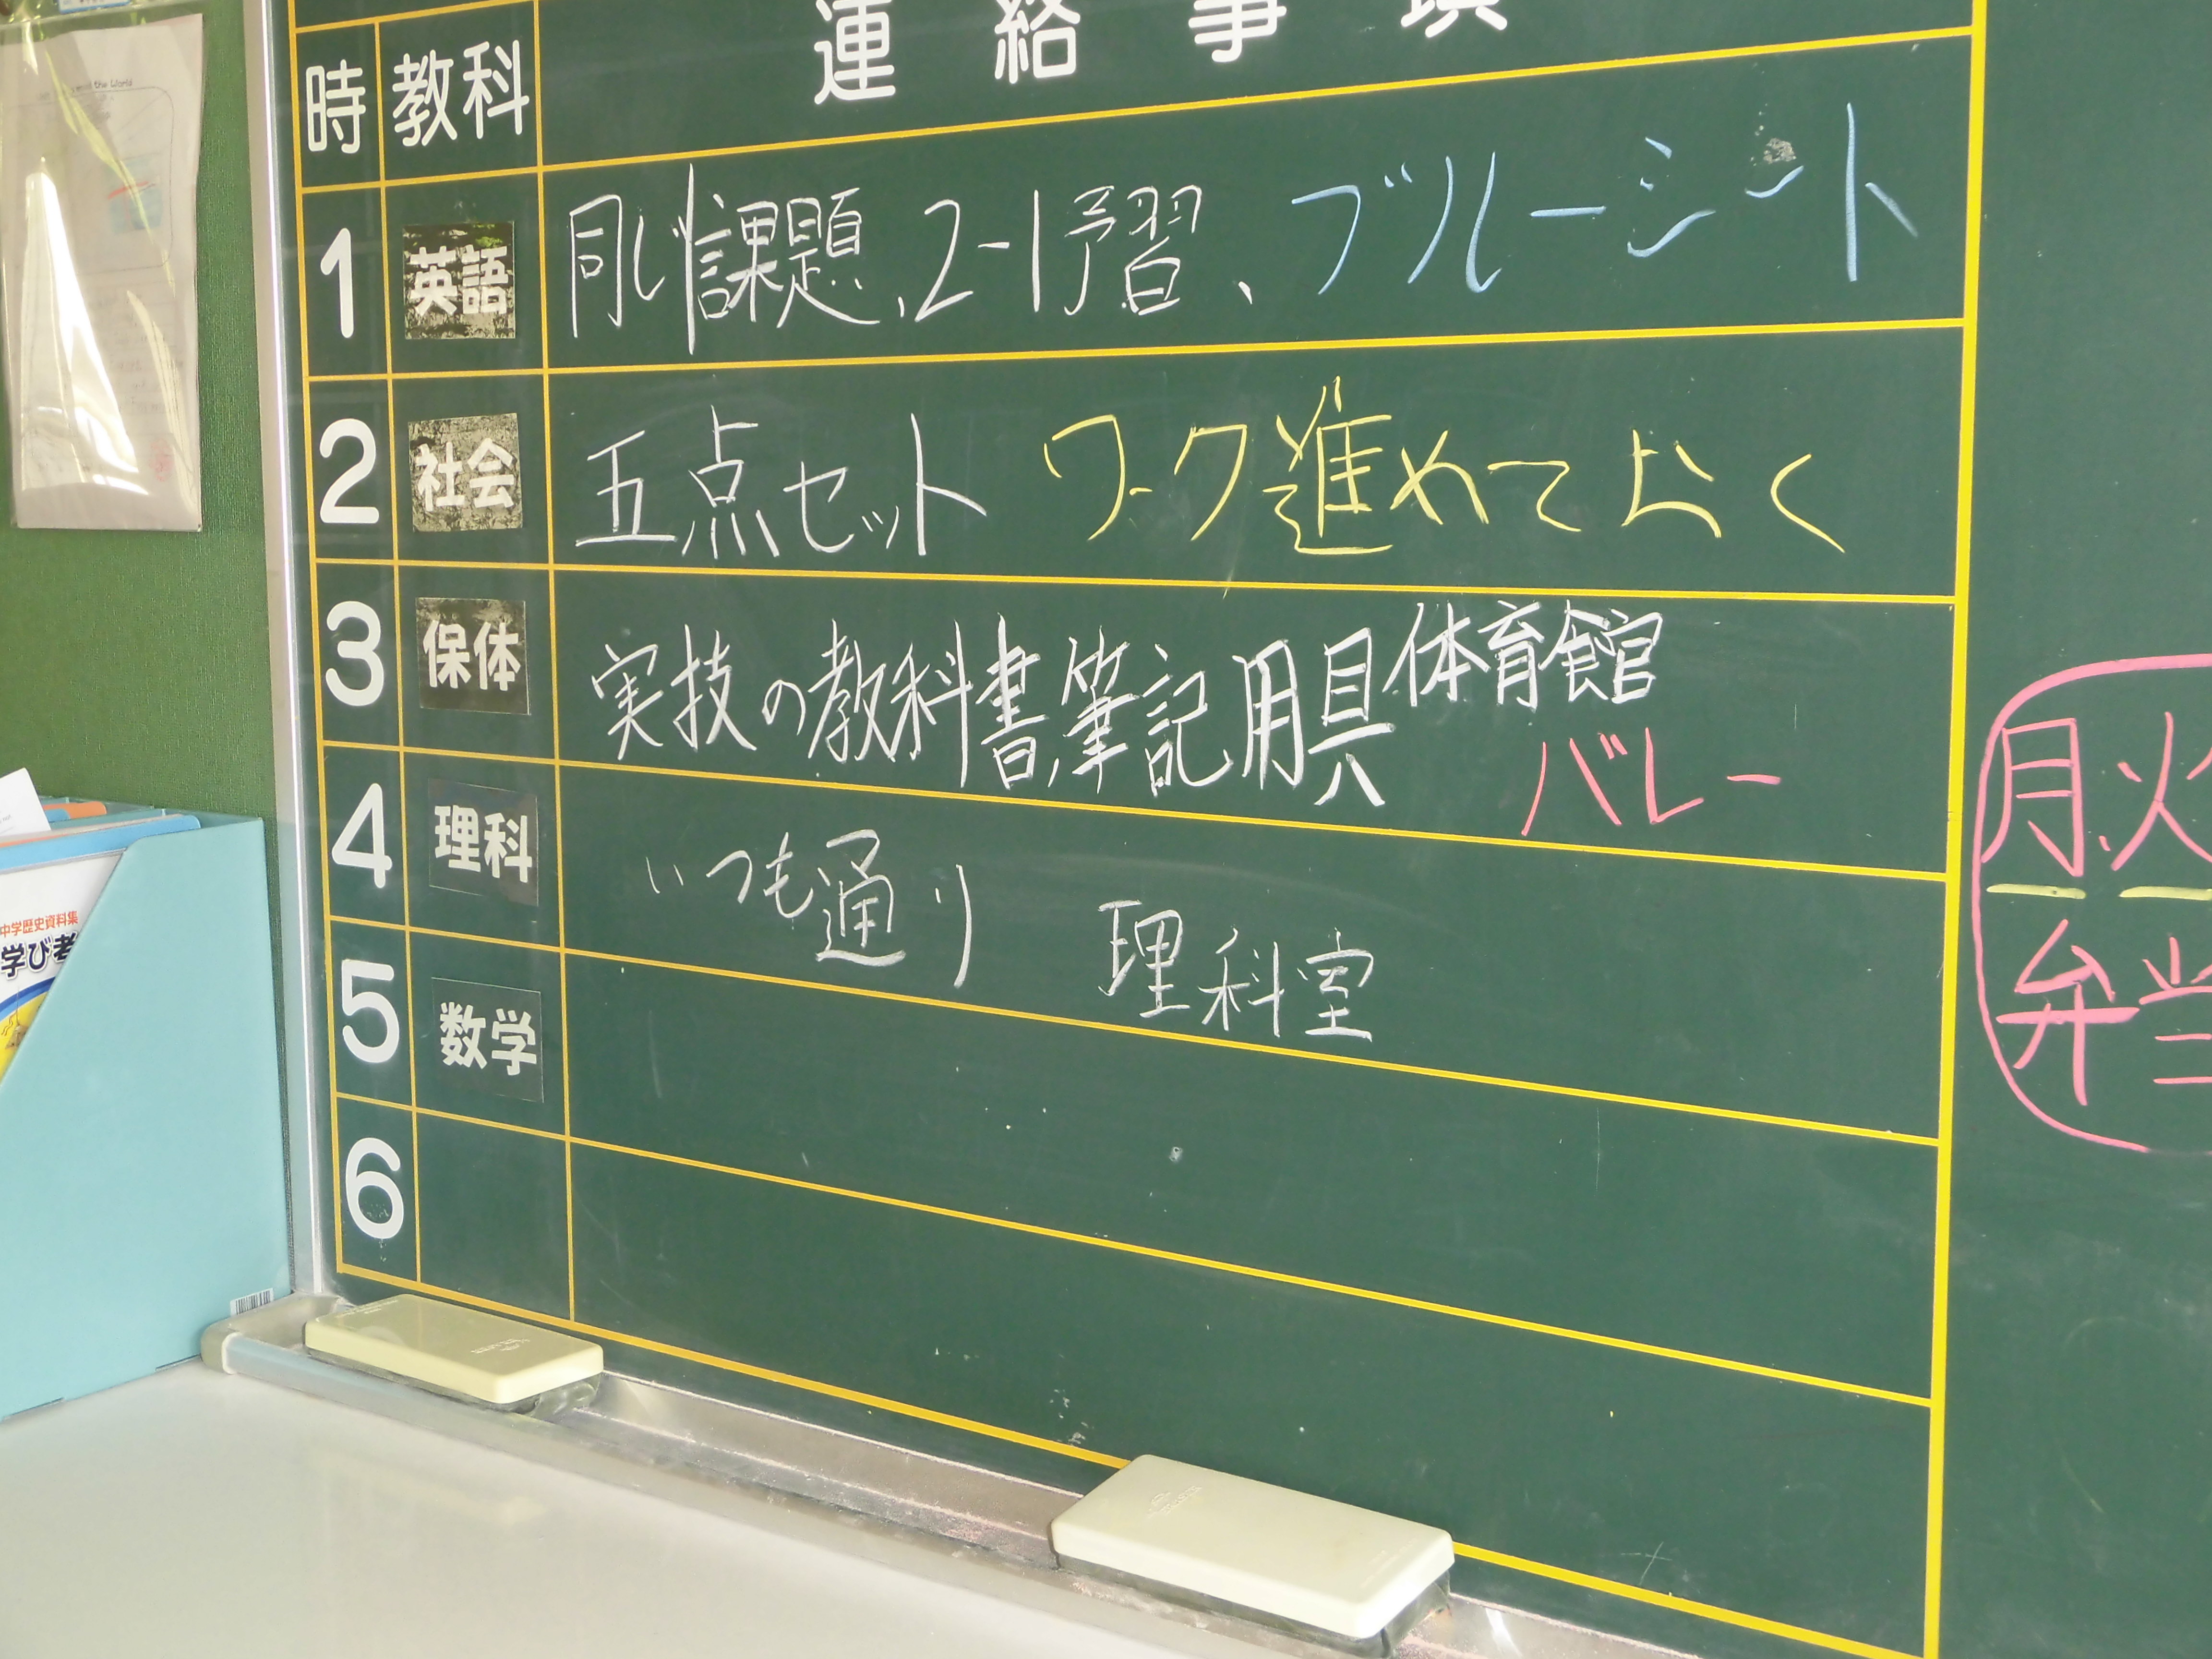 連絡事項
時 教科
1 英語 同じ課題、2-1予習、ブルーシート
2 社会 五点セット ワーク進めておく
3 保体 実技の教科書、筆記用具 体育館
バレー
4 理科 いつも通り 理科室
5 数学
6
月、火
弁当
中学歴史資料集
学び考